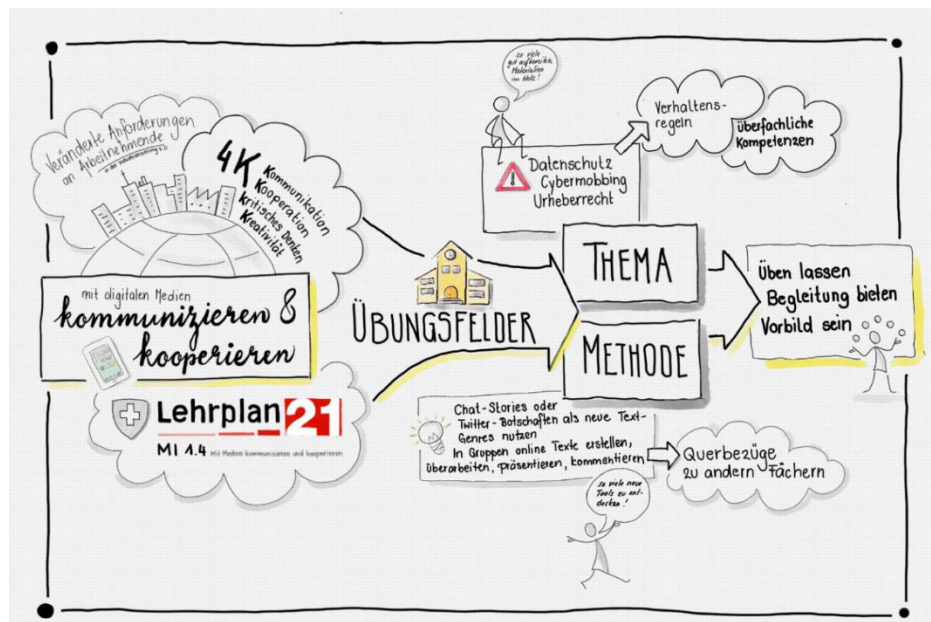 Veränderte Anforderungen
an Arbeitnehmende
4K
Kommunikation
Kooperation
kritisches Denken
Kreativität
mit digitalen Medien
kommunizieren &
kooperieren
Lehrplan 21
MI 1.4 Mit Medien kommunizieren und kooperieren
ÜBUNGSFELDER
so viele
gut aufbereitete
Materialien
im Netz!
Datenschutz
Cybermobbing
Urheberrecht
Verhaltens-
regeln
überfachliche
Kompetenzen
THEMA
METHODE
Chat-Stories oder
Twitter-Botschaften als neue Text-
Genres nutzen
In Gruppen online Texte erstellen,
überarbeiten, präsentieren, kommentieren
Querbezüge
zu andern Fächern
so viele neue
Tools zu ent-
decken!
Üben lassen
Begleitung bieten
Vorbild sein